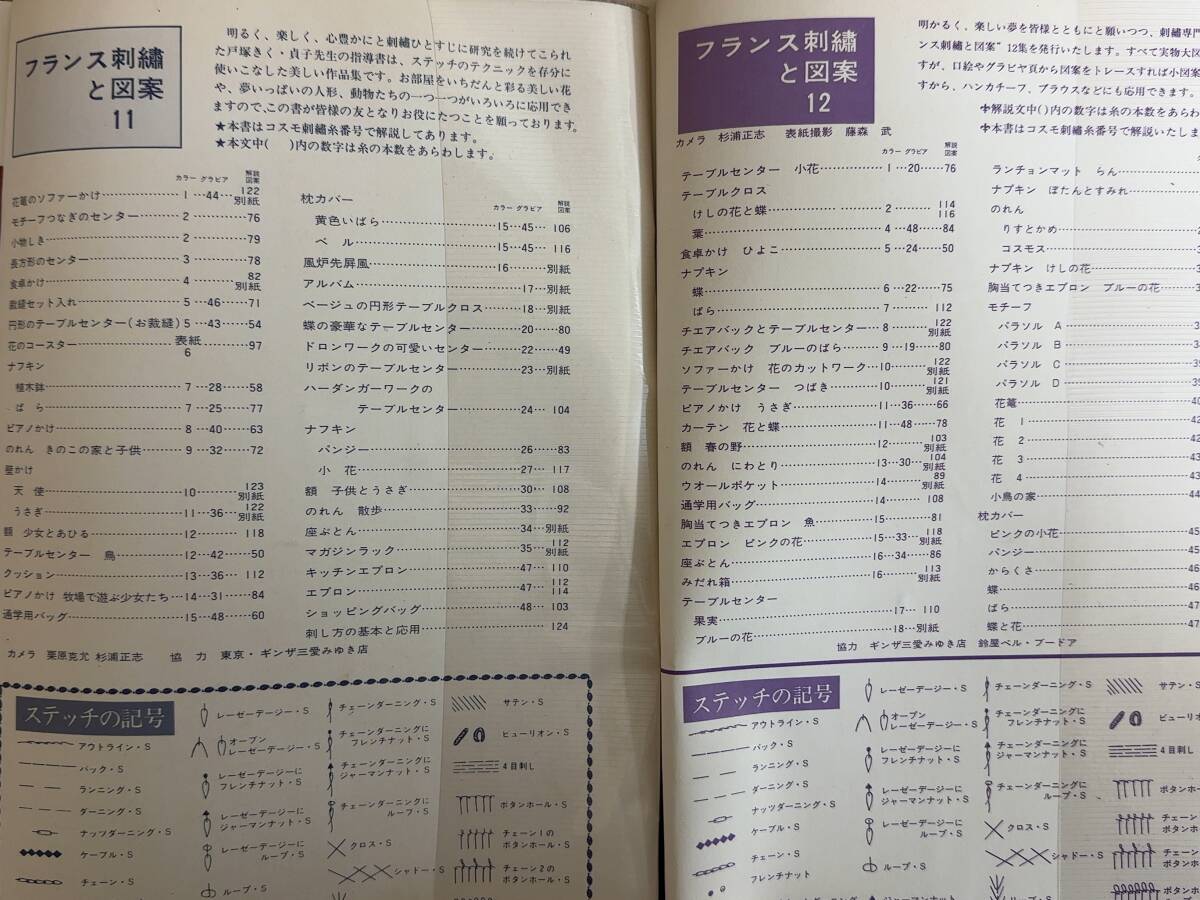 フランス刺繡
と図案
11
明るく、楽しく、心豊かにと刺繡ひとすじに研究を続けてこられ
た戸塚きく・貞子先生の指導書は、ステッチのテクニックを存分に
使いこなした美しい作品集です。お部屋をいちだんと彩る美しい花
や、夢いっぱいの人形、動物たちの一つ一つがいろいろに応用でき
ますので、この書が皆様の友となりお役にたつことを願っております。
★本書はコスモ刺繡糸番号で解説してあります。
★本文中( )内の数字は糸の本数をあらわします。
カラー グラビア 解説図案
花篭のソファーかけ 1 44 122 別紙
モチーフつなぎのセンター 2 76
小物しき 2 79
長方形のセンター 3 78
食卓かけ 4 82 別紙
裁縫セット入れ 5 46 71
円形のテーブルセンター(お裁縫) 5 43 54
花のコースター 表紙 6 97
ナフキン
植木鉢 7 28 58
ばら 7 25 77
ピアノかけ 8 40 63
のれん きのこの家と子供 9 32 72
壁かけ
天使 10 123 別紙
うさぎ 11 36 122 別紙
額 少女とあひる 12 118
テーブルセンター 鳥 12 42 50
クッション 13 36 112
ピアノかけ 牧場で遊ぶ少女たち 14 31 84
通学用バッグ 15 48 60
カラー グラビア 解説図案
枕カバー
黄色いばら 15 45 106
ベル 15 45 116
風炉先屏風 16 別紙
アルバム 17 別紙
ベージュの円形テーブルクロス 18 別紙
蝶の豪華なテーブルセンター 20 80
ドロンワークの可愛いセンター 22 49
リボンのテーブルセンター 23 別紙
ハーダンガーワークの
テーブルセンター 24 104
ナフキン
パンジー 26 83
小花 27 117
額 子供とうさぎ 30 108
のれん 散歩 33 92
座ぶとん 34 別紙
マガジンラック 35 112 別紙
キッチンエプロン 47 110
エプロン 47 112 114
ショッピングバッグ 48 103
刺し方の基本と応用 124
カメラ 栗原克允 杉浦正志 協力 東京・ギンザ三愛みゆき店
ステッチの記号
アウトライン・S
バック・S
ランニング・S
ダーニング・S
ナッツダーニング・S
ケーブル・S
チェーン・S
レーゼーデージー・S
オープン
レーゼーデージー・S
レーゼーデージーに
フレンチナット・S
レーゼーデージーに
ジャーマンナット・S
レーゼーデージーに
ループ・S
ループ・S
チェーンダーニング・S
チェーンダーニングに
フレンチナット・S
チェーンダーニングに
ジャーマンナット・S
チェーンダーニングに
ループ・S
クロス・S
シャドー・S
サテン・S
ビューリオン・S
4目刺し
ボタンホール・S
チェーン1の
ボタンホール・S
チェーン2の
ボタンホール・S
フランス刺繡
と図案
12
明かるく、楽しい夢を皆様とともにと願いつつ、刺繡専門
ンス刺繡と図案"12集を発行いたします。すべて実物大図
すが、口絵やグラビヤ頁から図案をトレースすれば小図案
すから、ハンカチーフ、ブラウスなどにも応用できます。
✚解説文中( )内の数字は糸の本数をあらわ
✚本書はコスモ刺繡糸番号で解説いたしま
カメラ 杉浦正志 表紙撮影 藤森 武
カラー グラビア 解説図案
テーブルセンター 小花 1 20 76
テーブルクロス
けしの花と蝶 2 114 116
葉 4 48 84
食卓かけ ひよこ 5 24 50
ナプキン
蝶 6 22 75
ばら 7 112
チエアバックとテーブルセンター 8 122 別紙
チエアバック ブルーのばら 9 19 80
ソファーかけ 花のカットワーク 10 122 別紙
テーブルセンター つばき 10 121 別紙
ピアノかけ うさぎ 11 36 66
カーテン 花と蝶 11 48 78
額 春の野 12 103 別紙
のれん にわとり 13 30 104 別紙
ウオールポケット 14 89 別紙
通学用バッグ 14 108
胸当てつきエプロン 魚 15 81
エプロン ピンクの花 15 33 118 別紙
座ぶとん 16 34 86
みだれ箱 16 113 別紙
テーブルセンター
果実 17 110
ブルーの花 18 別紙
ランチョンマット らん
ナプキン ぼたんとすみれ
のれん
りすとかめ
コスモス
ナプキン けしの花
胸当てつきエプロン ブルーの花
モチーフ
パラソル A
パラソル B
パラソル C
パラソル D
花篭 40
花 1 42
花 2 42
花 3 43
花 4 43
小鳥の家 44
枕カバー
ピンクの小花 45
パンジー 45
からくさ 46
蝶 46
ばら 47
蝶と花 47
協力 ギンザ三愛みゆき店 鈴屋ベル・ブードア
ステッチの記号
アウトライン・S
バック・S
ランニング・S
ダーニング・S
ナッツダーニング・S
ケーブル・S
チェーン・S
フレンチナット
レーゼーデージー・S
オープン
レーゼーデージー・S
レーゼーデージーに
フレンチナット・S
レーゼーデージーに
ジャーマンナット・S
レーゼーデージーに
ループ・S
ループ・S
チェーンダーニング・S
チェーンダーニングに
フレンチナット・S
チェーンダーニングに
ジャーマンナット・S
チェーンダーニングに
ループ・S
クロス・S
シャドー・S
サテン・S
ビューリオ
4目刺し
ボタンホー
チェーン
ボタンホ
チェーン
ボタンホ